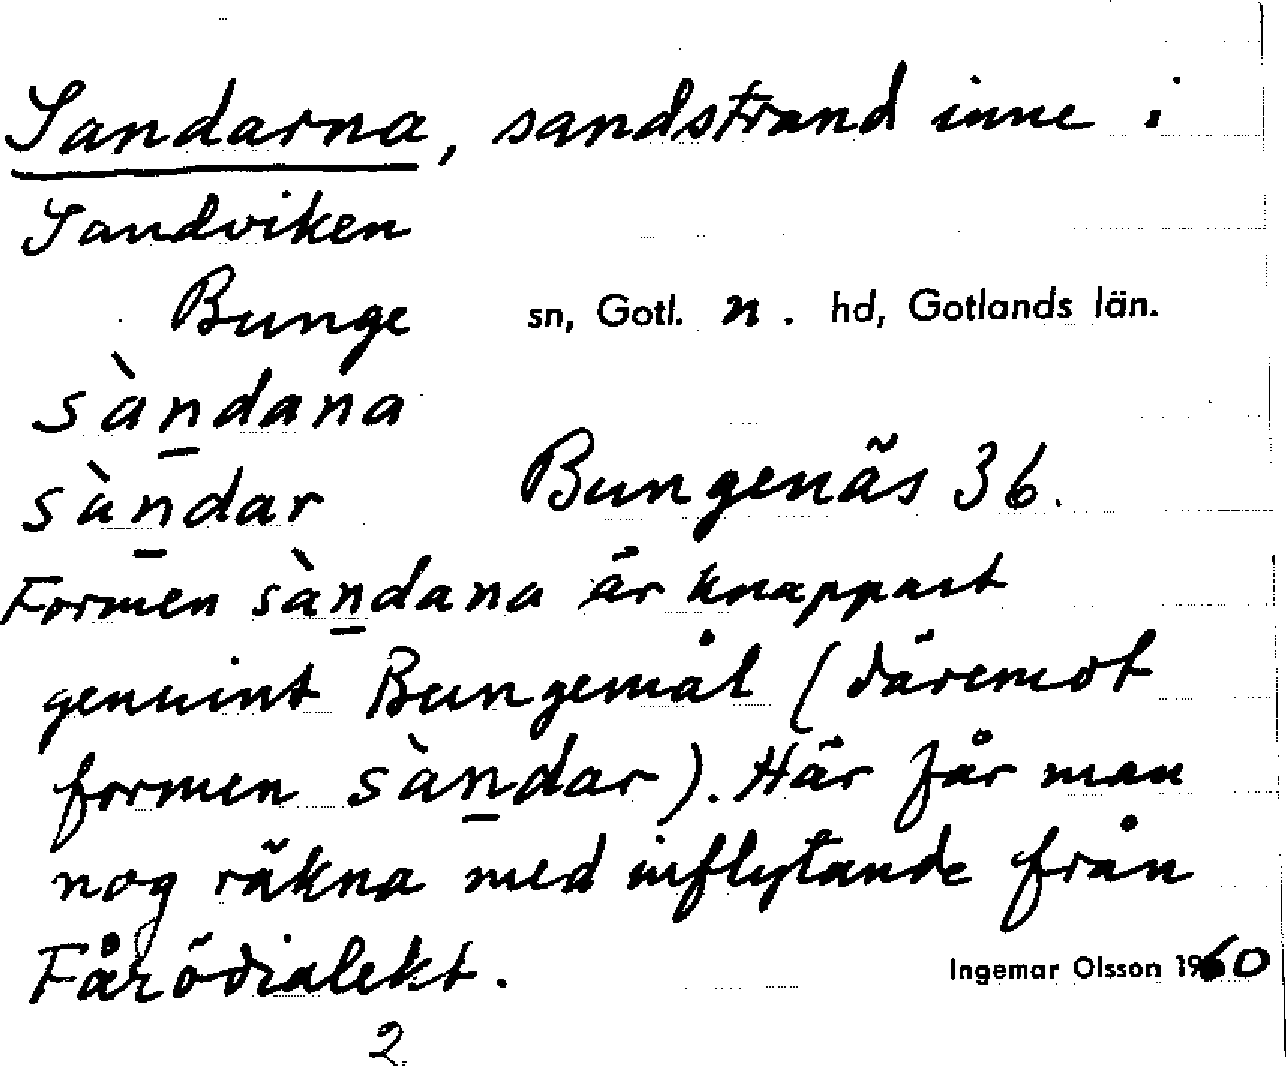 Sandarna, sandstrand inne i
Sandviken
Bunge sn, Gotl. n. hd, Gotlands län.
sàn̲dana
sàn̲dar Bungenäs 36.
Formen sàn̲dana är knappast
genuint Bungemål (däremot
formen sàn̲dar). Här får man
nog räkna med inflytande från
Fårödialekt.
Ingemar Olsson 1960
2